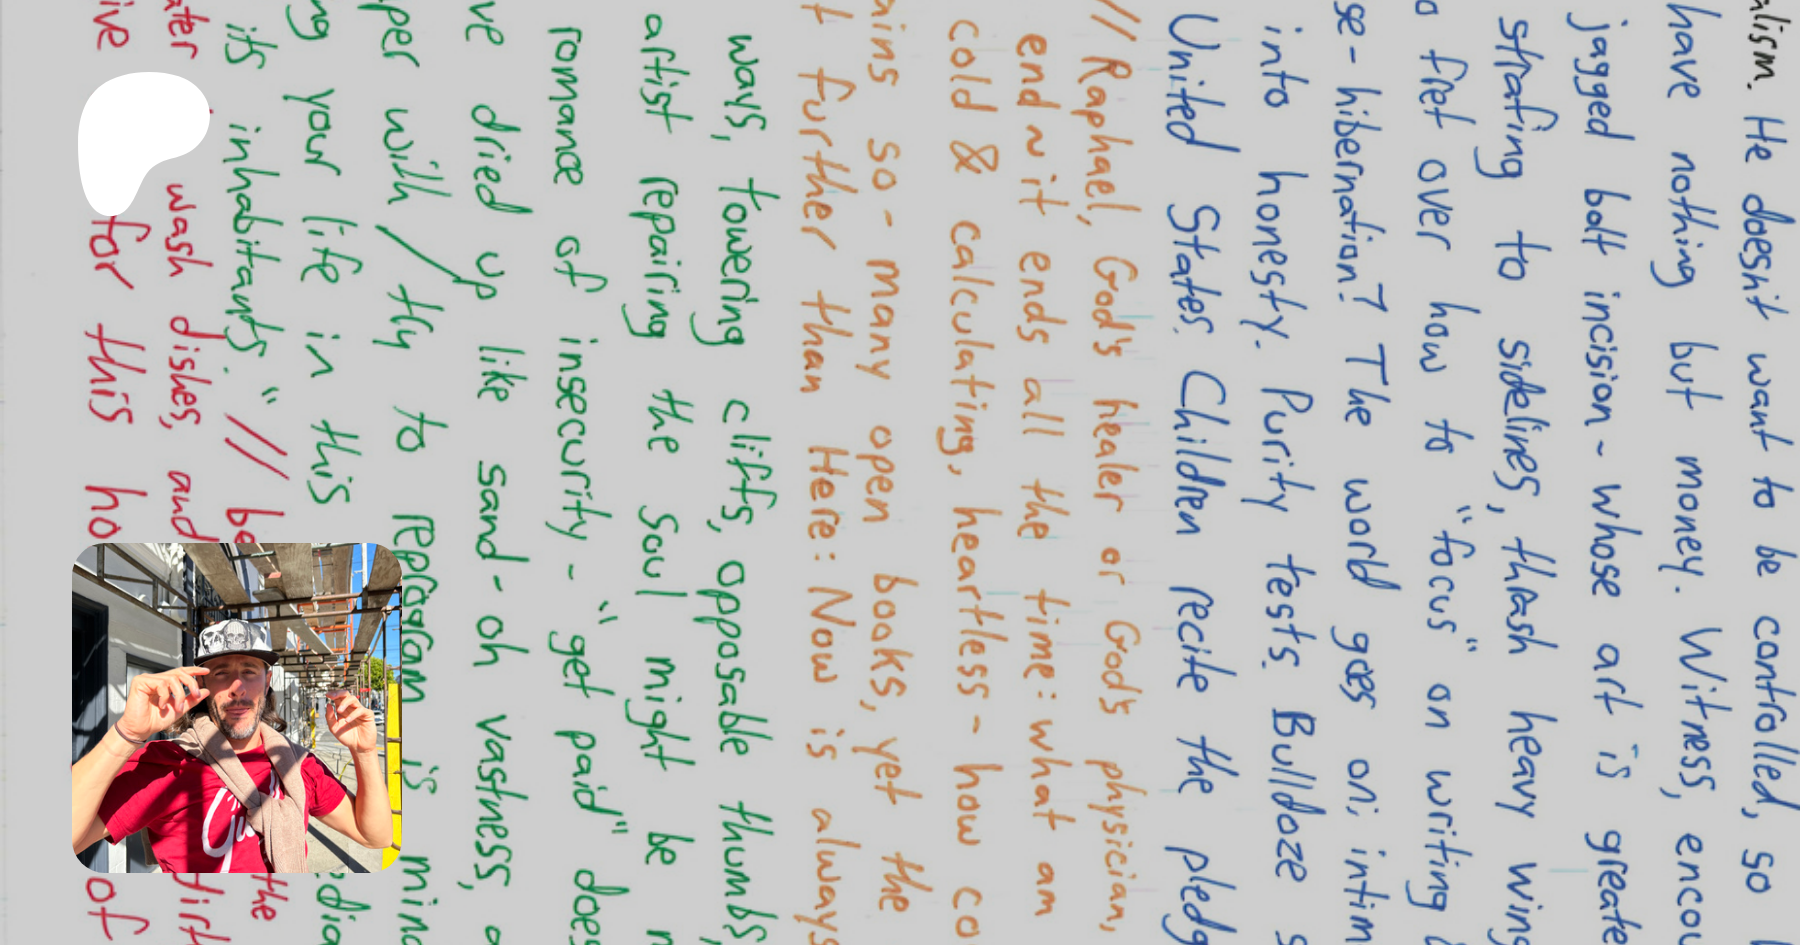 alism. He doesn't want to be controlled, so
have nothing but money. Witness, encou
jagged bolt incision ~ whose art is greate
strafing to sidelines, thrash heavy wing
o fret over how to "focus" on writing
se - hibernation? The world goes on; intim
into honesty. Purity tests. Bulldoze s
United States. Children recite the pledg
// Raphael, God's healer or God's physician,
end ~ it ends all the time: what am
cold & calculating, heartless - how co
ains so - many open books, yet the
t further than Here: Now is always
ways, towering cliffs, opposable thumbs,
artist repairing the soul might be
romance of insecurity - "get paid" does
ve dried up like sand - oh vastness, a
per with / thy to reprogram is mind
ng your life in this dia
its inhabitants." // be the
ater wash dishes, and dirt
ive for this ho of